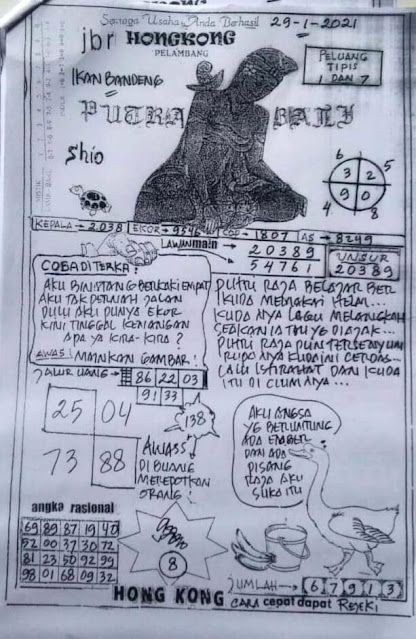 Semoga Usaha Anda Berhasil
29-1-2021
jbr HONGKONG
PELAMBANG
IKAN BANDENG
PELUANG
TIPIS
1 DAN 7
PUTRA BALI
Shio
6 5
3 2
9 0
4 8
KEPALA → 2038 EKOR → 9546 COP → 1807 AS → 8249
LAWAN main
20389
54761
UNSUR
20389
COBA DITERKA :
AKU BINATANG BERKAKI EMPAT
AKU TAK PERNAH JALAN
DULU AKU PUNYA EKOR
KINI TINGGAL KENANGAN
APA YA KIRA-KIRA ?
AWAS MAINKAN GAMBAR !
PUTRU RAJA BELAJAR BER
KUDA MEMAKAI HELM...
KUDANYA LAGU MELANGKAH
SEAKAN IA THU YG DIAJAK...
PUTRU RAJA PUN TERSENYUM
RUPANYA KUDA INI CERDAS...
LALU ISTIRAHAT DAN KUDA
ITU DI CIUMNYA...
JALUR UANG →
86 22 03
91 33
25 04
138
73 88
AWASS
DI BUANG
MEREPOTKAN
ORANG !
AKU ANGSA
YG BERUNTUNG
ADA EMBER
DAN ADA
PISANG
RAJA AKU
SUKA ITU
angka rasional
69 89 87 19 40
52 00 37 30 72
81 23 50 92 99
98 01 68 09 32
8
JUMLAH → 6 7 9 1 3
HONG KONG CARA cepat dapat REJEKI